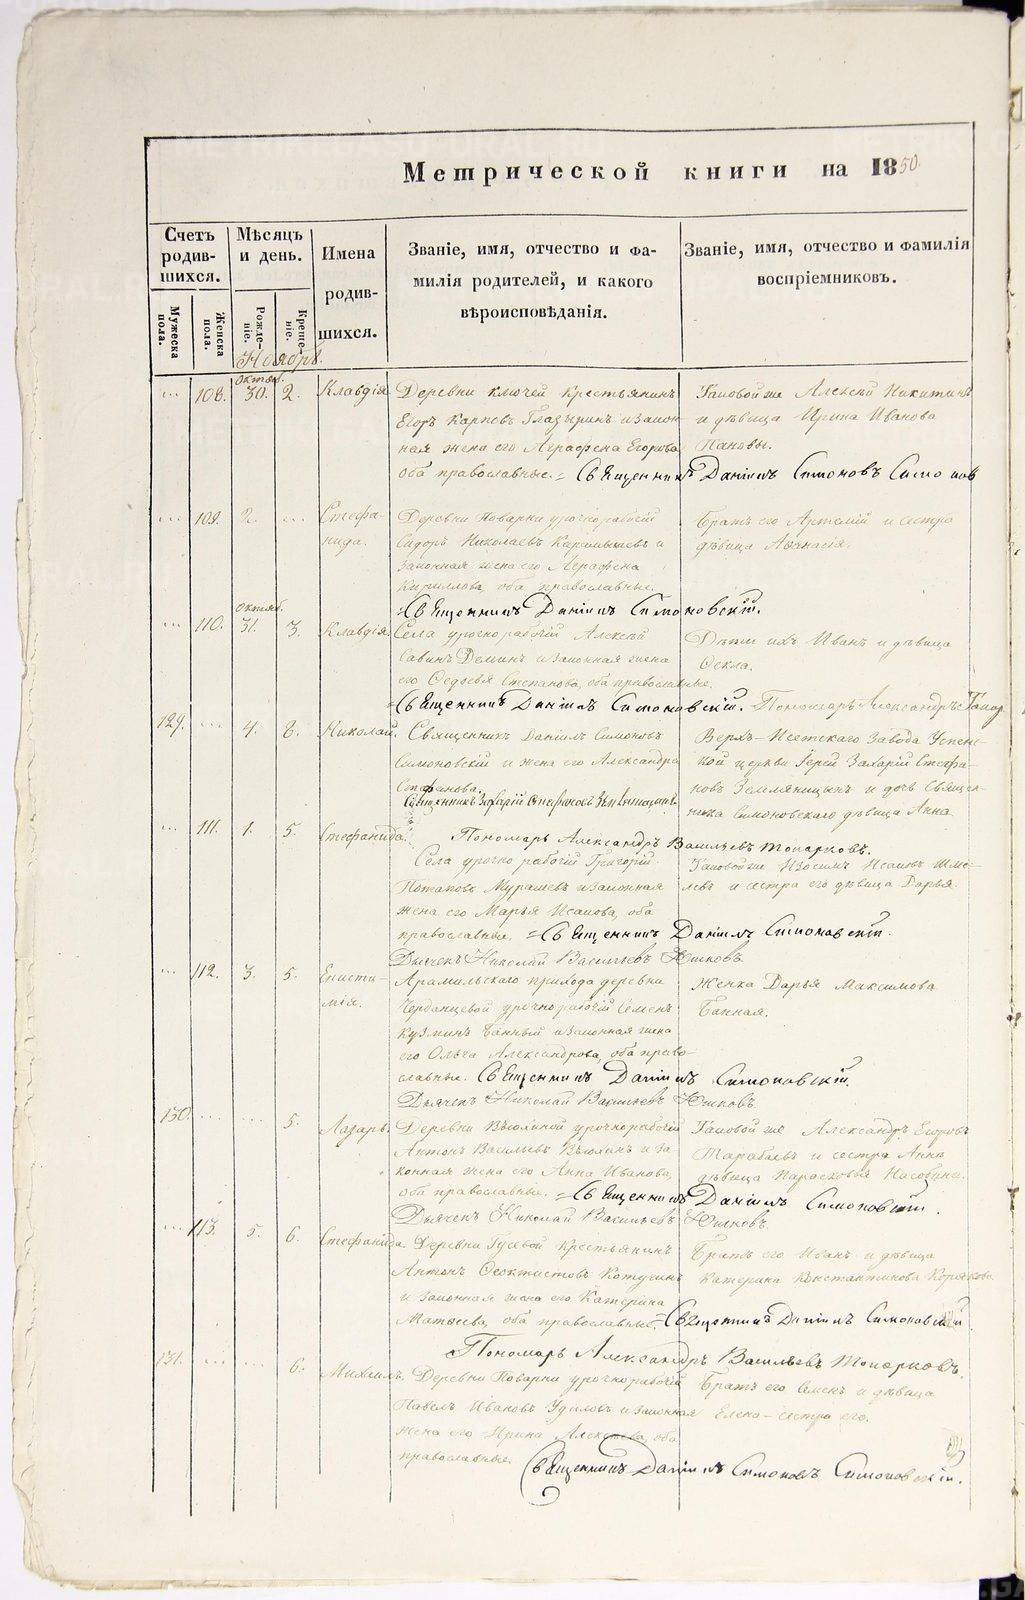 Метрической книги на 1850.
Счетъ родившихся.
Мѣсяцъ и день.
Имена родившихся.
Званіе, имя, отчество и фамилія родителей, и какого вѣроисповѣданія.
Званіе, имя, отчество и фамилія воспріемниковъ.
Мужеска пола.
Женска пола.
Рожденіе.
Крещеніе.
Ноябрь.
Октяб.
108. 30. 2. Клавдія Деревни Ключей крестьянинъ Таковой же Алексѣй Никитинъ
Егоръ Карповъ Глазыринъ и закон- и дѣвица Ирина Иванова
ная жена его Аграфена Егорова Пановы.
оба православные. Священникъ Даніилъ Симоновъ
109. 2. Стефа- Деревни Поварни урочнорабочій Братъ его Артемій и сестра
нида. Сидоръ Николаевъ и дѣвица Афанасія.
законная жена его Аграфена
Кириллова, оба православные.
Октяб. Священникъ Даніилъ Симоновскій.
110. 31. 3. Клавдія. Села урочнорабочій Алексѣй Дѣти ихъ Иванъ и дѣвица
Савинъ Деминъ и законная жена Фекла.
его Федосья Степанова, оба православные.
Священникъ Даніилъ Симоновскій. Пономарь Александръ
129. 4. 8. Николай. Священникъ Даніилъ Симоновъ Верхъ-Исетскаго завода Успен-
Симоновскій и жена его Александра ской церкви Іерей Захарій Стефа-
Стефанова. новъ Земляницынъ и дочь Священ-
Священникъ Захарій Стефановъ Земляницынъ. ника Симоновскаго дѣвица Анна
111. 1. 5. Стефанида. Пономарь Александръ Васильевъ Топорковъ.
Села урочно рабочій Григорій Таковой же Изосимъ Исаковъ
Потаповъ Мурашевъ и законная и сестра его дѣвица Дарья.
жена его Марья Исакова, оба
православные. Священникъ Даніилъ Симоновскій.
Дьячекъ Николай Васильевъ Юшковъ
112. 3. 5. Еписти- Арамильскаго прихода деревни Женка Дарья Максимова
мія. урочнорабочій Семенъ Банная.
Кузминъ Банный и законная жена
его Ольга Александрова, оба право-
славные. Священникъ Даніилъ Симоновскій.
Дьячекъ Николай Васильевъ Юшковъ.
130. 5. Лазарь. Деревни урочнорабочій Таковой же Александръ Егоровъ
Антонъ Васильевъ и за- и сестра Анны
конная жена его Анна Иванова, дѣвица Парасковья
оба православные. Священникъ Даніилъ Симоновскій.
Дьячекъ Николай Васильевъ Юшковъ.
113. 5. 6. Стефанида Деревни Гусевой крестьянинъ Братъ его Иванъ и дѣвица
Антонъ Феоктистовъ Катерина Константинова
и законная жена его Катерина
Матвеева, оба православные. Священникъ Даніилъ Симоновскій.
Пономарь Александръ Васильевъ Топорковъ.
131. 6. Михаилъ. Деревни Поварни урочнорабочій Братъ его Семенъ и дѣвица
Павелъ Ивановъ Удиловъ и законная Елена – сестра его.
жена его Ирина Алексѣева, оба
православные.
Священникъ Даніилъ Симоновъ Симоновскій.